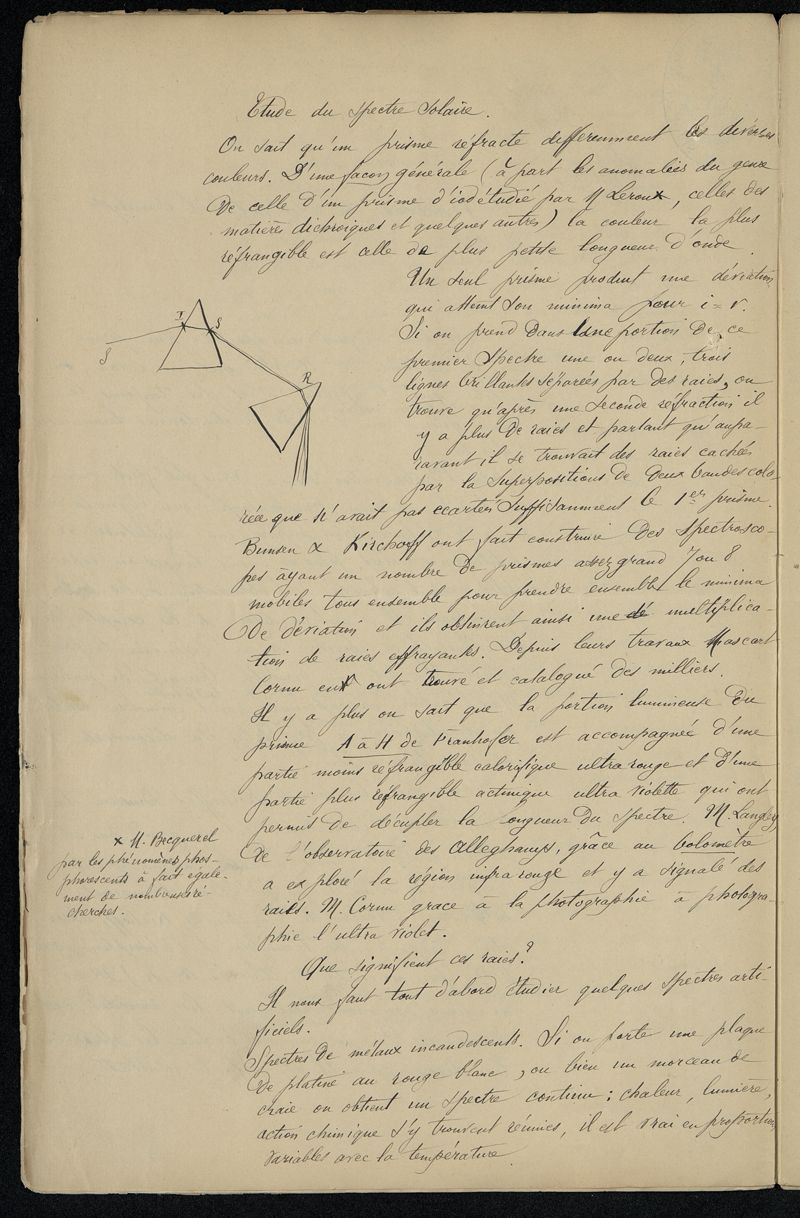 Etude du Spectre Solaire.
On sait qu'un prisme réfracte differemment les diverses
couleurs. D'une façon générale (à part les anomalies du genre
de celle d'un prisme d'iode étudié par M Leroux, celles des
matières dichroiques et quelques autres) la couleur la plus
réfrangible est celle de plus petite longueur d'onde.
Un seul prisme produit une déviation
qui atteint son minima pour i = r.
Si on prend dans une portion de ce
premier spectre une ou deux, trois
lignes brillantes séparées par des raies, on
trouve qu'après une seconde réfraction il
y a plus de raies et partant qu'aupa-
ravant il se trouvait des raies cachées
par la superpositions de deux bandes colo-
rée que n'avait pas ecartées suffisamment le 1er prisme.
Bunsen & Kirchoff ont fait construire des Spectrosco-
pes ayant un nombre de prismes assez grand 7 ou 8
mobiles tous ensemble pour prendre ensemble le minima
de déviation et ils obtinrent ainsi une dé multiplica-
tion de raies effrayantes. Depuis leurs travaux Mascart
Cornu en ont trouvé et catalogué des milliers.
Il y a plus on sait que la portion lumineuse du
prisme A à H de Fraunhofer est accompagnée d'une
partie moins réfrangible calorifique ultra rouge et d'une
partie plus réfrangible actinique ultra violette qui ont
permis de décupler la longueur du spectre. M. Langley
de l'observatoire des Alleghamys, grâce au bolomètre
a exploré la région infra rouge et y a signalé des
raies. M. Cornu grace à la photographie à photogra-
phie l'ultra violet.
x M. Becquerel
par les phénomènes phos-
phorescents à fait égale-
ment de nombreuses re-
cherches.
Que signifient ces raies?
Il nous faut tout d'abord étudier quelques spectres arti-
ficiels.
Spectres de métaux incandescents. Si on porte une plaque
de platine au rouge blanc, ou bien un morceau de
craie on obtient un spectre continu: chaleur, lumière,
action chimique s'y trouvent réunies, il est vrai en proportions
variables avec la température.
S
I
S
R